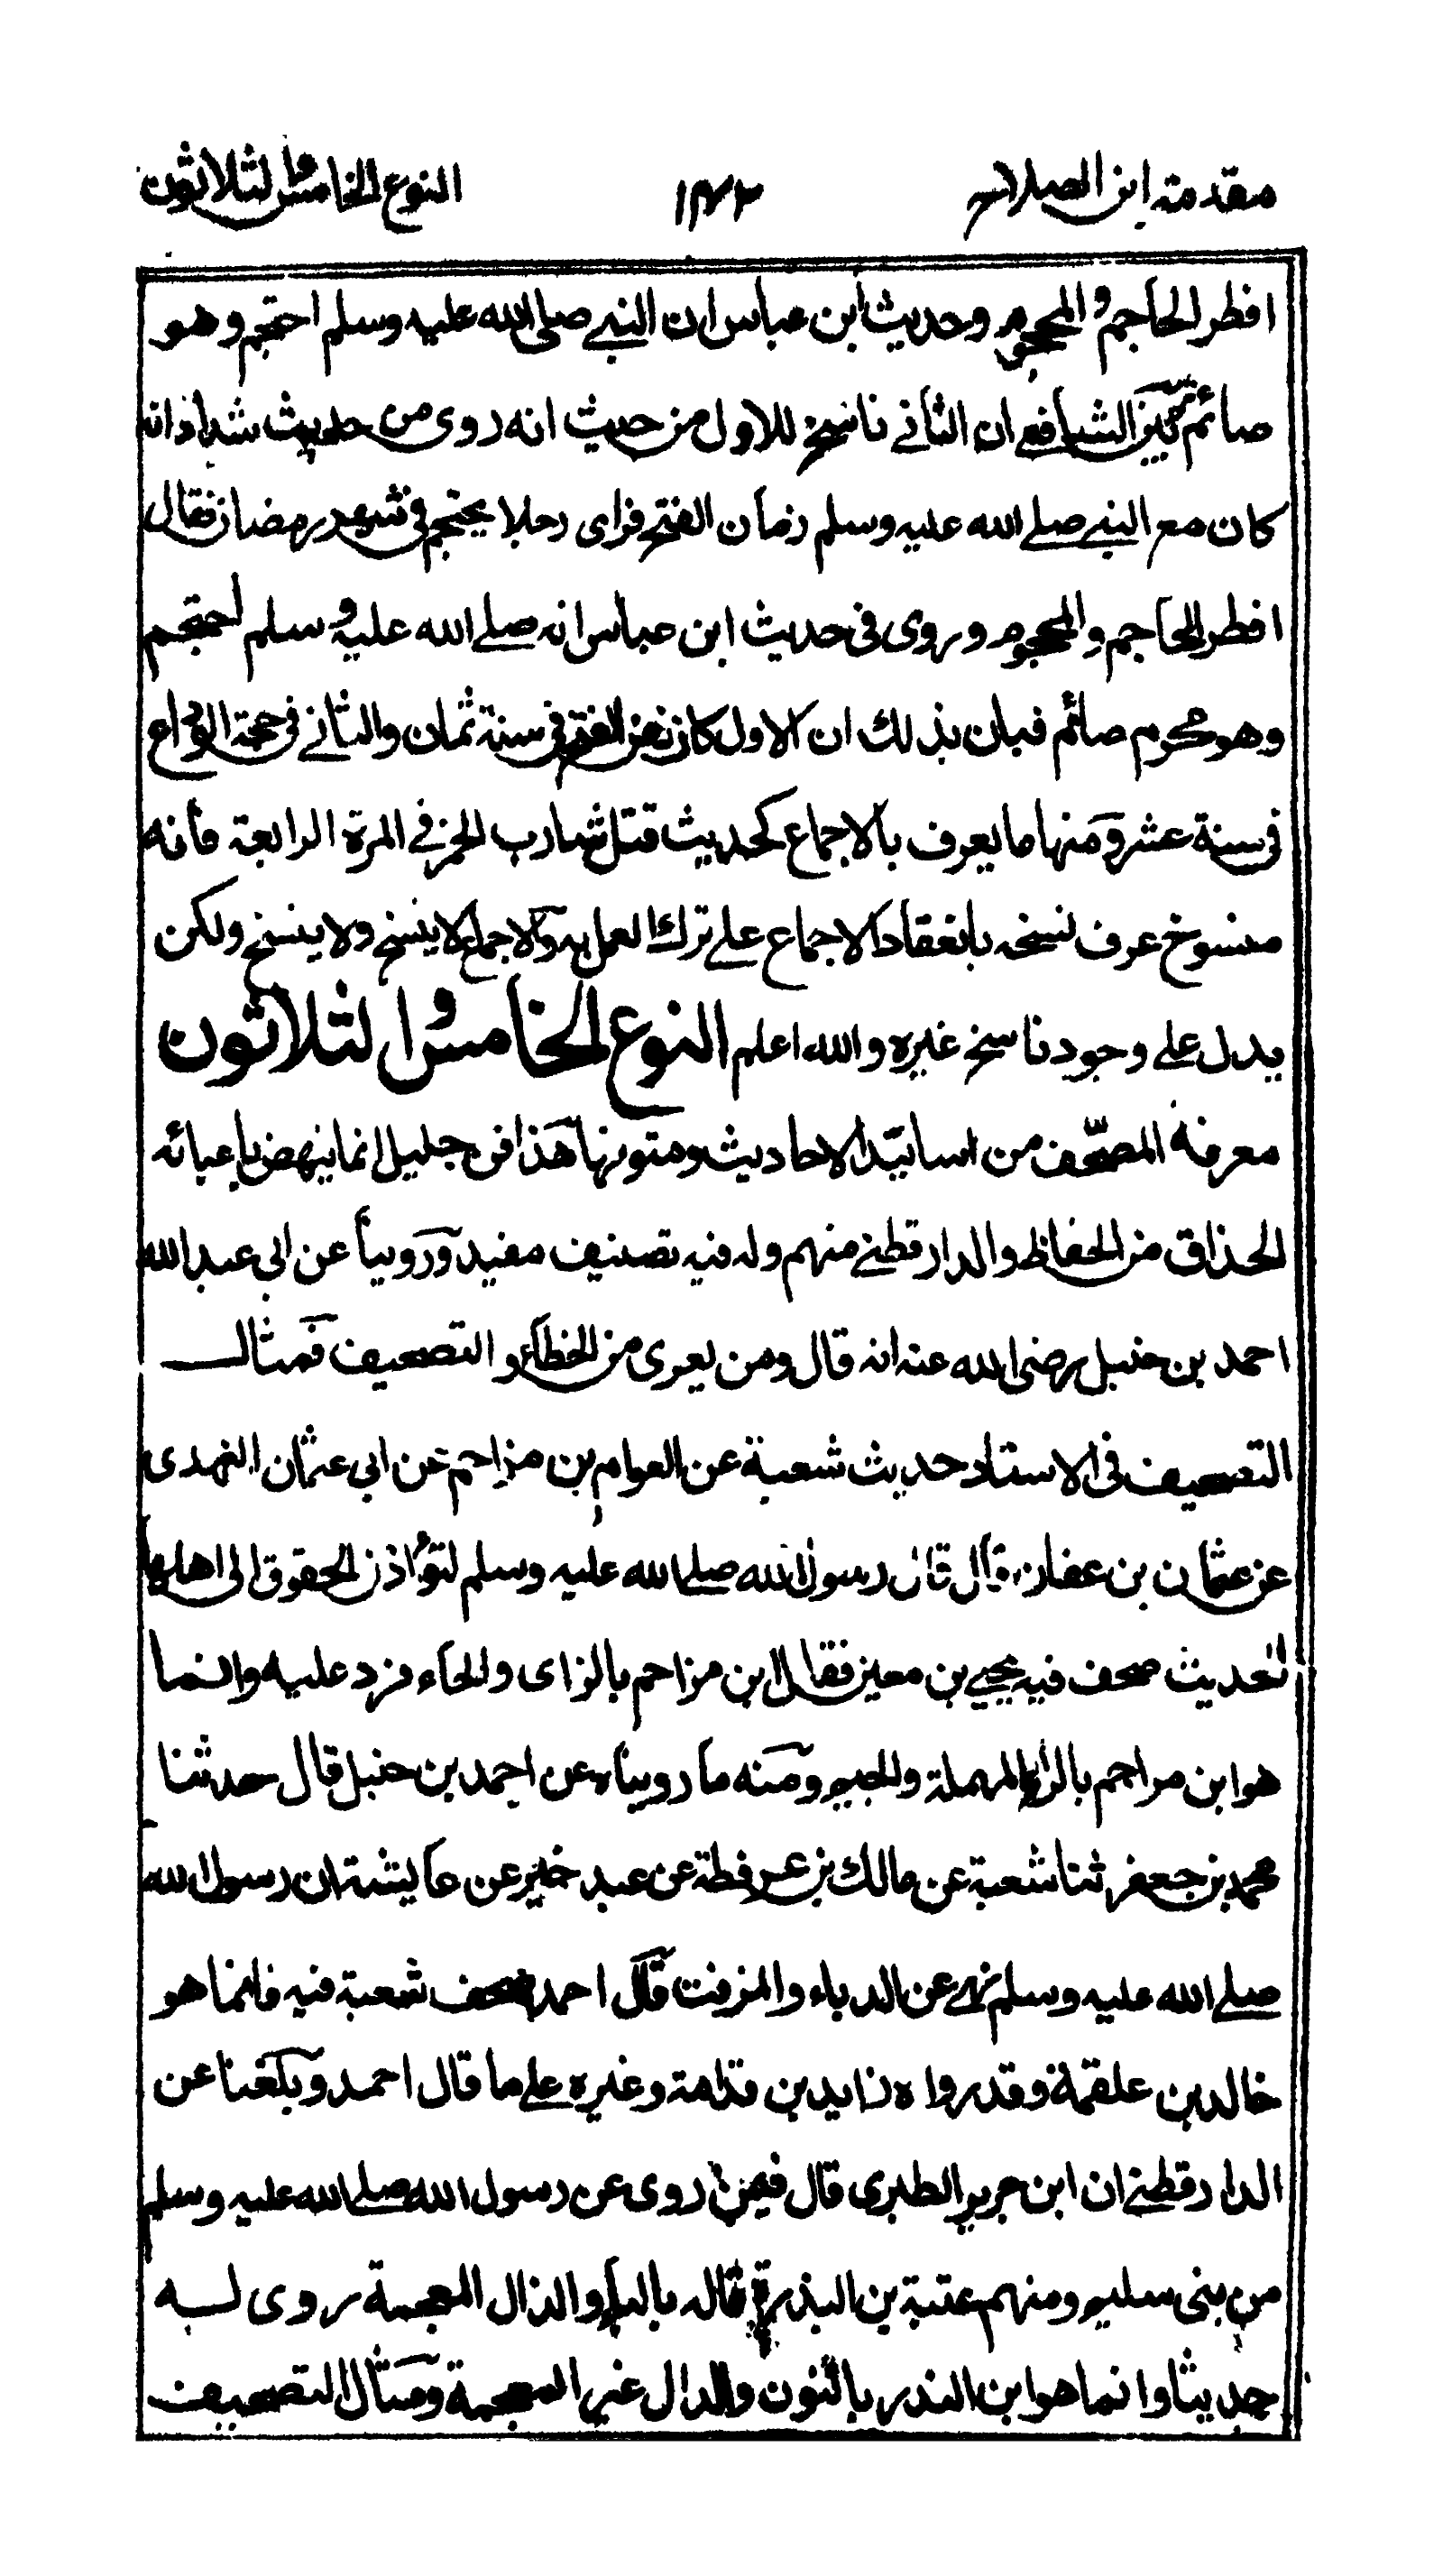 مقدمة ابن الصلاح ١٤٢ النوع الخامس والثلاثون
افطر الحاجم والمحجوم وحديث ابن عباس ان النبي صلى الله عليه وسلم احتجم وهو
صائم فبين الشافعي ان الثاني ناسخ للاول من حيث انه روى من حديث شداد انه
كان مع النبي صلے الله عليه وسلم زمان الفتح فراى رجلا يحتجم في شهر رمضان فقال
افطر الحاجم والمحجوم وروى في حديث ابن عباس انه صلے الله عليه وسلم احتجم
وهو محرم صائم فبان بذلك ان الاول كان زمن الفتح في سنة ثمان والثاني في حجة الوداع
في سنة عشر ومنها ما يعرف بالاجماع كحديث قتل شارب الخمر في المرة الرابعة فانه
منسوخ عرف نسخه بانعقاد الاجماع علے ترك العمل به والاجماع لا ينسخ ولا ينسخ ولكن
يدل علے وجود ناسخ غيره والله اعلم النوع الخامس والثلاثون
معرفة المصحف من اسانيد الاحاديث ومتونها هذا فن جليل انما ينهض باعبائه
الحذاق من الحفاظ والدارقطني منهم وله فيه تصنيف مفيد وروينا عن ابي عبد الله
احمد بن حنبل رضى الله عنه انه قال ومن يعرى من الخطاء والتصحيف فمثال
التصحيف في الاسناد حديث شعبة عن العوام بن مزاحم عن ابي عثمان النهدى
عن عثمان بن عفان قال قال رسول الله صلے الله عليه وسلم لتؤدن الحقوق الى اهلها
الحديث صحف فيه يحيى بن معين فقال ابن مزاحم بالزاى والحاء فرد عليه وانما
هو ابن مراجم بالراء المهملة والجيم ومنه ما رويناه عن احمد بن حنبل قال حدثنا
محمد بن جعفر ثنا شعبة عن مالك بن عرفطة عن عبد خير عن عايشة ان رسول الله
صلے الله عليه وسلم نهى عن الدباء والمزفت قال احمد صحف شعبة فيه فانما هو
خالد بن علقمة وقد رواه زايد بن قدامة وغيره علے ما قال احمد وبلغنا عن
الدارقطني ان ابن جرير الطبرى قال فيمن روى عن رسول الله صلے الله عليه وسلم
من بنى سليم ومنهم عتبة بن البذر قاله بالباء والذال المعجمة روى له
حديثا وانما هو ابن الندر بالنون والدال غير المعجمة ومثال التصحيف